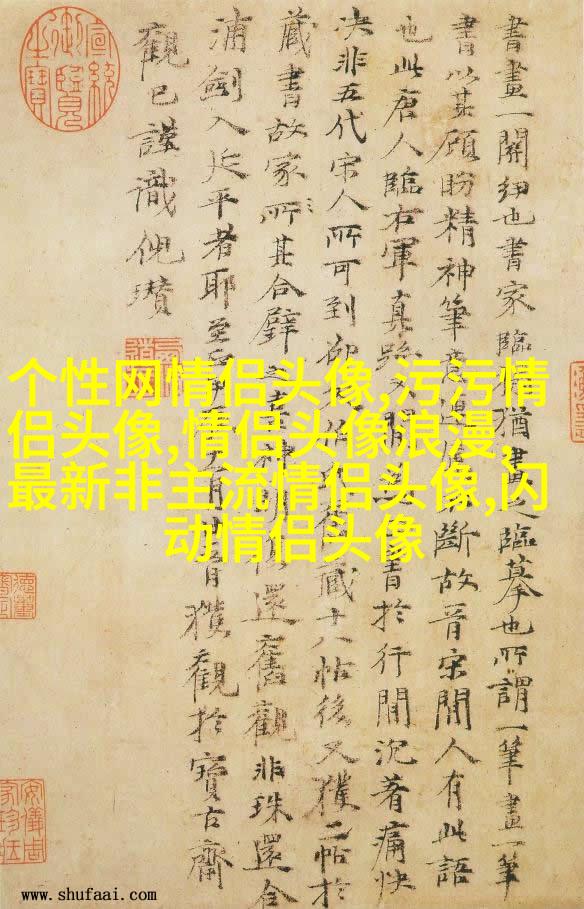 書畫一關紐也書家臨帖猶畫之臨摹也所謂一筆畫一筆
書以其顧盼精神筆意不斷故晉宋間人有此語
也此唐人臨右軍真跡又書於行間沉著痛快
決非五代宋人所可到藏十八帖後又獲二帖於
藏書故家所其合璧神明還舊觀非珠還合
浦劍入延平者耶至月廿獲觀於寶古齋
觀已謹識倪瓚
宣統御覽之寶
个性网情侣头像,污污情
侣头像,情侣头像浪漫,
最新非主流情侣头像,闪
动情侣头像
www.shufaai.com